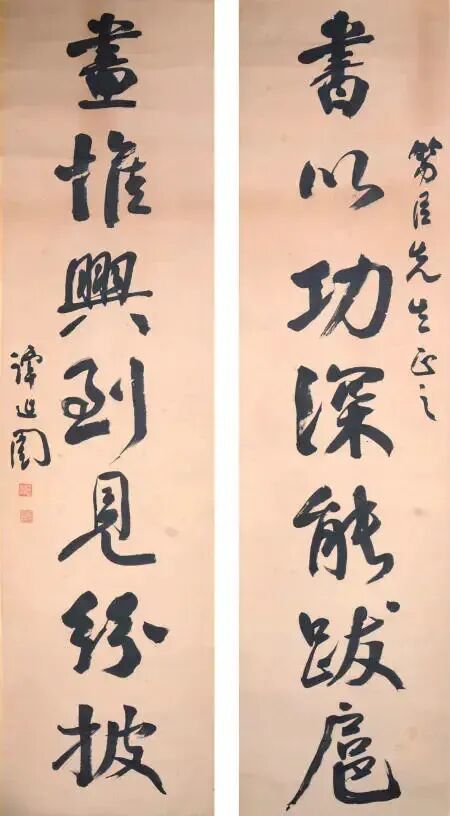 臣先生正之
書以功深能跋扈
畫惟興到見紛披
譚延闓